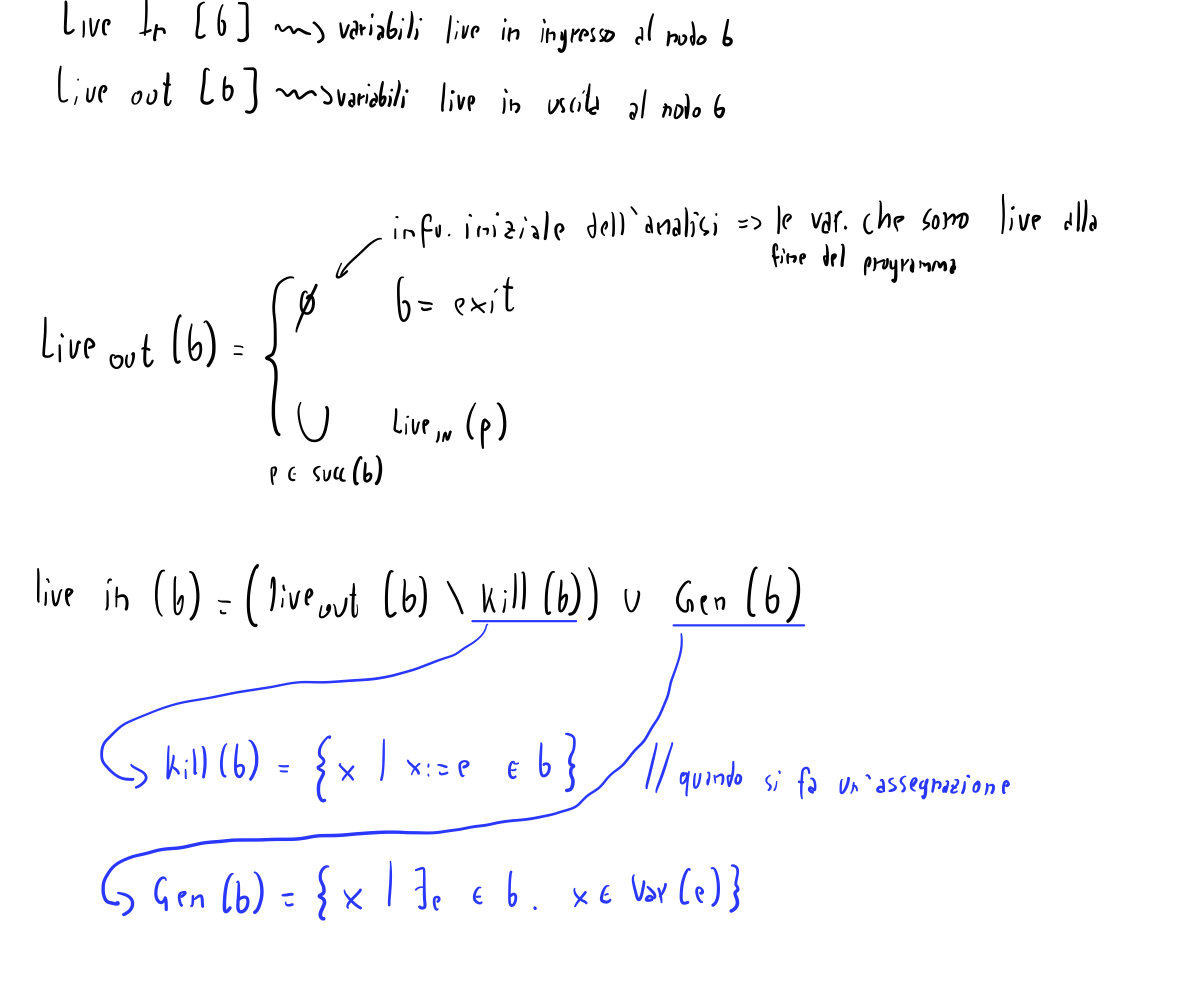 Live In [b] ~~> variabili live in ingresso al nodo b
Live out [b] ~~> variabili live in uscita al nodo b
info. iniziale dell'analisi => le var. che sono live alla
fine del programma
Live out (b) = { ∅ b = exit
∪ Live IN (p)
p ∈ succ(b)
live in (b) = (live out (b) \ kill (b)) ∪ Gen (b)
kill (b) = { x | x := e ∈ b } // quando si fa un'assegnazione
Gen (b) = { x | ∃e ∈ b. x ∈ Var (e) }